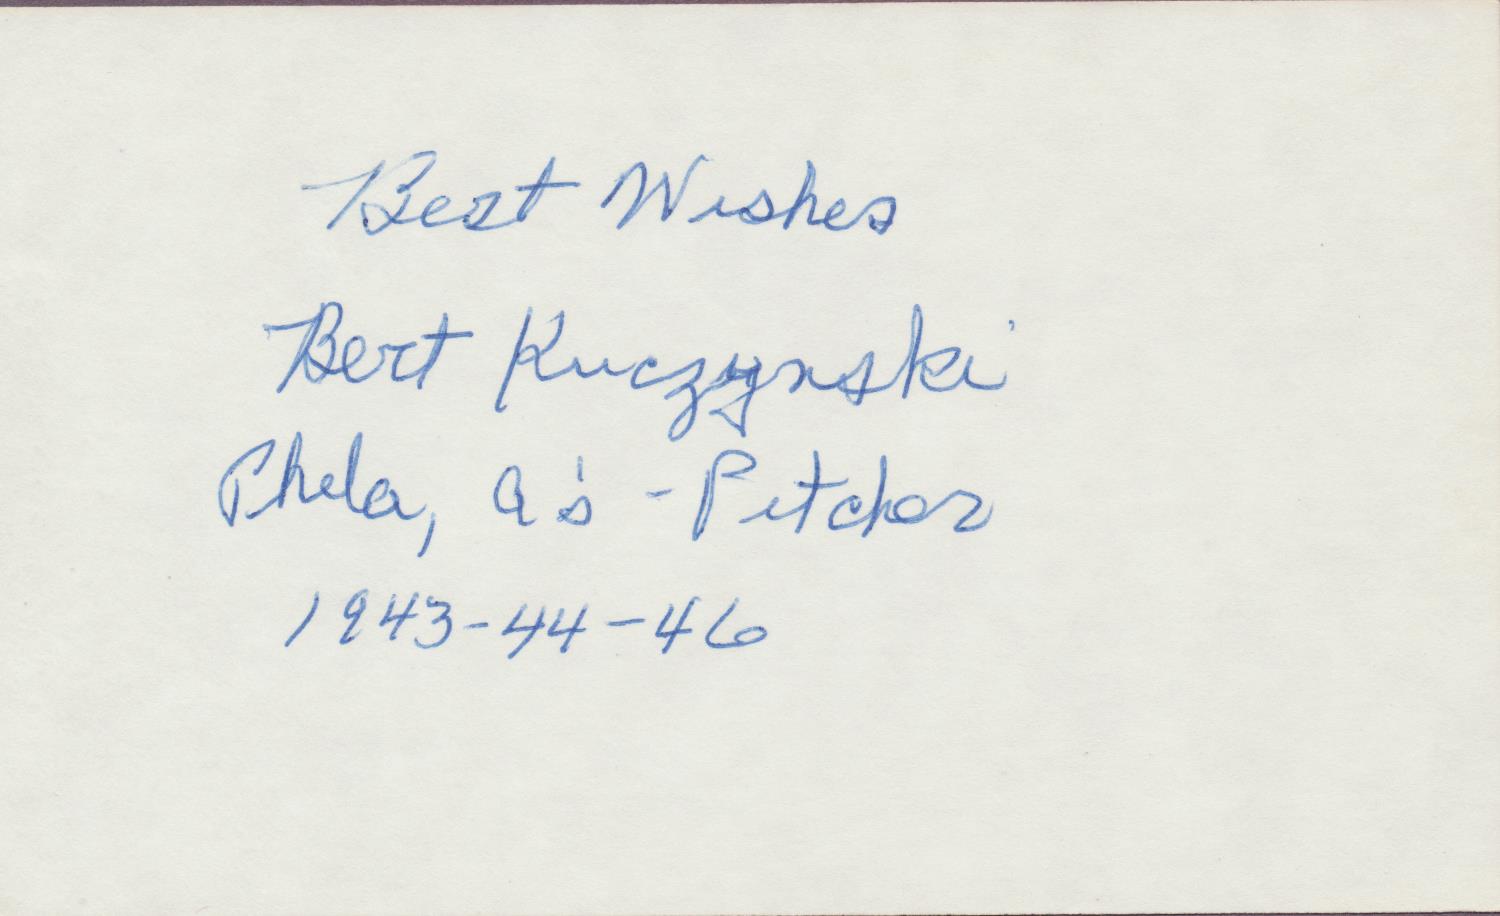 Best Wishes
Bert Kuczynski
Phila, A's - Pitcher
1943-44-46